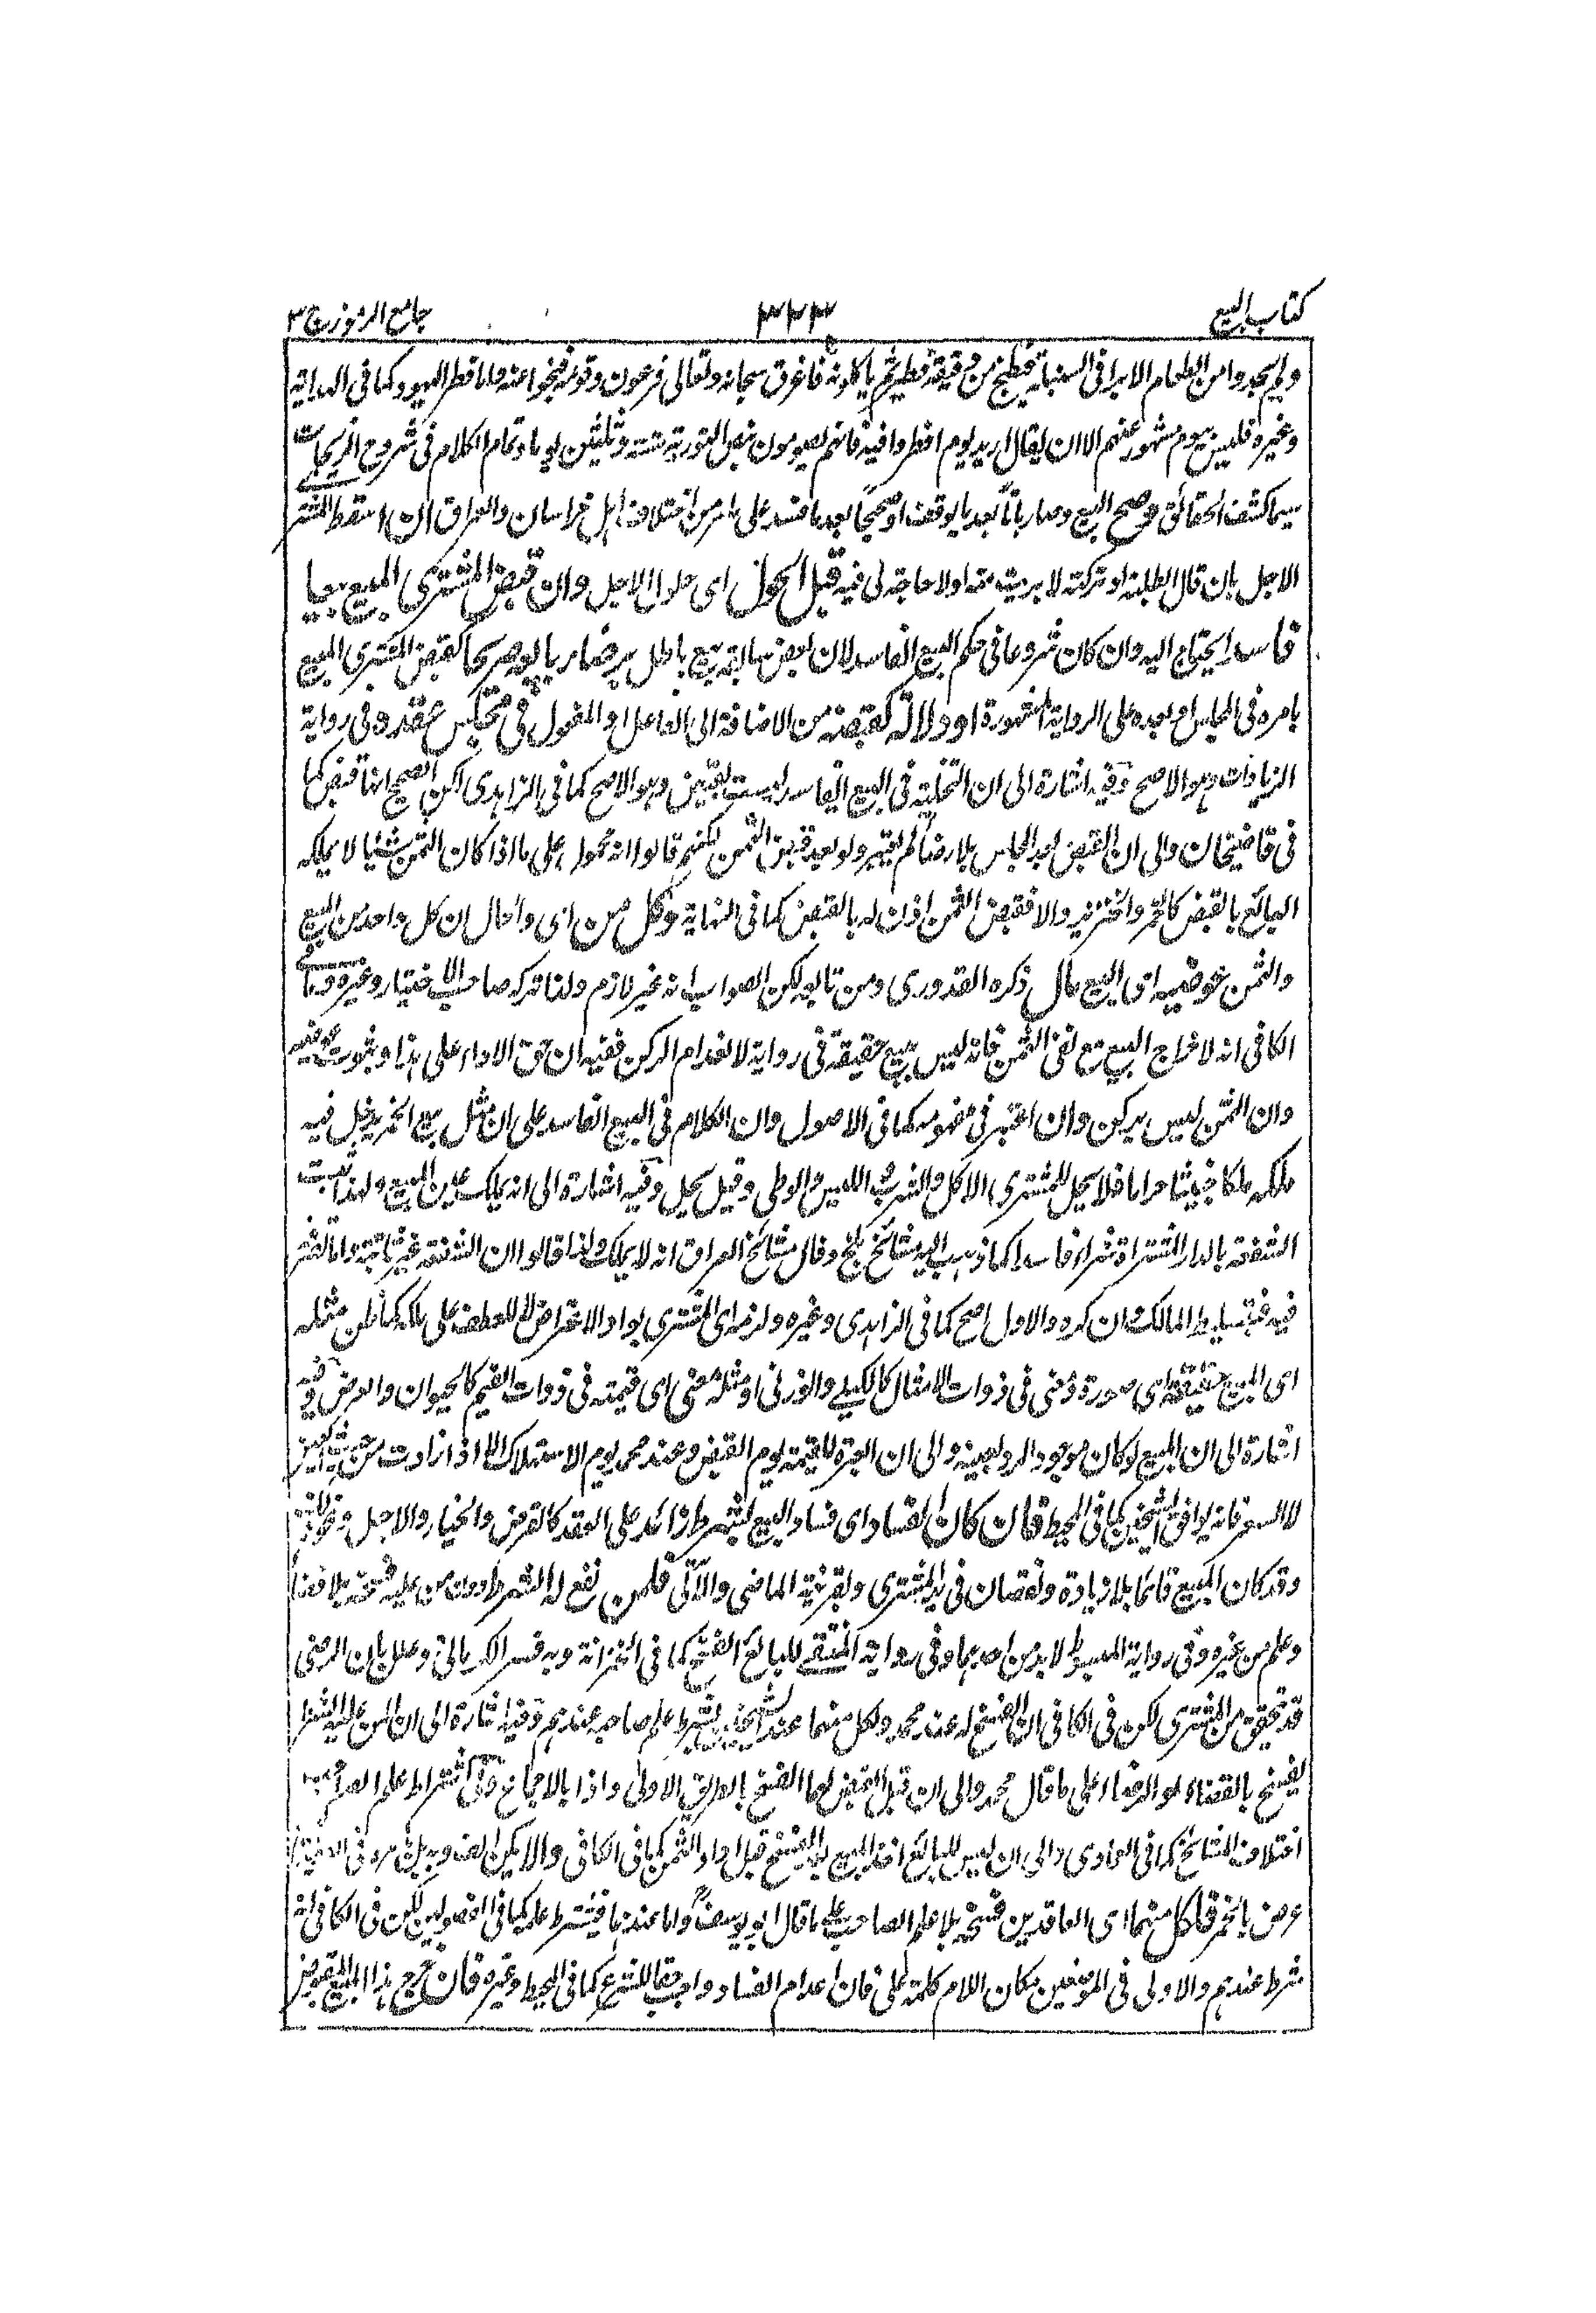 كتاب البيع ٣٢٣ جامع الرموز ج ٣
ولم يجدوا من الطعام الا برا فى السنبلة فيطبخ من دقيقة فطير ثم ياكلونه فاغرق سبحانه وتعالى فرعون وقومه فنجوا عنه واما فطر اليهود كما فى الهداية
وغيره فليس بيوم مشهور عنهم الا ان يقال اريد يوم افطروا فيه فانهم يصومون بنص التورية ستة وثلثين يوما وتمام الكلام فى شروح الزيجات
سيما كشف الحقائق وصح البيع وصار باتا بعد ما يوقف او صحيحا بعد ما فسد على ما مر من اختلاف اهل خراسان والعراق ان اسقط المشترى
الاجل بان قال ابطلته او تركته لا بريت منه اولا حاجة لى فيه قبل الحلول اى حلول الاجل وان قبض المشترى المبيع بيعا
فاسدا يحتاج اليه وان كان شروعا فى حكم البيع الفاسد لان بعض سابقه بيع باطل برضا بايعه صريحا كقبض المشترى المبيع
بامره فى المجلس او بعده على الرواية المشهورة او دلالة كقبضه من الاضافة الى الفاعل او المفعول فى مجلس عقده وفى رواية
الزيادات وهو الاصح وفيه اشارة الى ان التخلية فى البيع الفاسد ليست بقبض وهو الاصح كما فى الزاهدى لكن الصحيح انها قبض كما
فى قاضيخان والى ان القبض بعد المجلس بلا رضا لم يعتبر ولو بعد قبض الثمن لكنهم قالوا انه محمول على ما اذا كان الثمن شيئا لا يملكه
البائع بالقبض كالخمر والخنزير والا فقبض الثمن اذن له بالقبض كما فى النهاية وكل من اى والحال ان كل واحد من المبيع
والثمن عوضيه اى البيع مال ذكره القدورى ومن تابعه لكن الصواب انه غير لازم ولذا تركه صاحب الاختيار وغيره وما فى
الكافى انه لاخراج البيع مع نفى الثمن فانه ليس ببيع حقيقة فى رواية لانعدام الركن ففيه ان حق الاداء على هذا وثبوت عوضيه
وان الثمن ليس بركن وان اعتبر فى مفهومه كما فى الاصول وان الكلام فى البيع الفاسد على ان مثل بيع الخمر يدخل فيه
ملكه ملكا خبيثا حراما فلا يحل للمشترى الاكل والشرب واللبس والوطى وقيل يحل وفيه اشارة الى انه يملك عين المبيع ولهذا تثبت
الشفعة بالدار المشتراة شراء فاسدا كما ذهب اليه مشائخ بلخ وقال مشائخ العراق انه لا يملك ولذا قالوا ان الشفعة غير ثابتة واما التصرف
فيه فبتسليط المالك وان كره والاول اصح كما فى الزاهدى وغيره ولزمه اى المشترى بواو الاعتراض لا للعطف على ملكه كما ظن مثله
اى المبيع حقيقة اى صورة ومعنى فى ذوات الامثال كالكيلى والوزنى او مثله معنى اى قيمته فى ذوات القيم كالحيوان والعرض وفيه
اشارة الى ان المبيع لو كان موجودا لرد بعينه والى ان العبرة لقيمته يوم القبض وعند محمد يوم الاستهلاك الا اذا زادت من حيث العين
لا السعر فانه يوافق الشيخين كما فى المحيط فان كان الفساد اى فساد البيع بشرط زائد على العقد كالقرض والخيار والاجل ونحوه
وقد كان المبيع قائما بلا زيادة ونقصان فى يد المشترى وبقرينة الماضى والآتى فلمن نفع له الشرط دون من عليه فسخه بلا قضاء
وعلم من غيره وفى رواية المبسوط لا بد من احدهما وفى رواية المنتقى للبائع الفسخ كما فى الخزانة وبه فسر الكرمانى وعلل بان الرضى
قد تحقق من المشترى لكن فى الكافى ان الفسخ له عند محمد ولكل منهما عند الشيخين بشرط علم صاحبه عندهم وفيه اشارة الى ان لمن عليه الشرط
يفسخ بالقضاء او الرضاء على ما قال محمد والى ان قبل القبض لهما الفسخ بالطريق الاولى واذا بالاجماع وفى اشتراط علم الصاحب
اختلاف المشائخ كما فى العمادى والى ان ليس للبائع اخذ المبيع بعد الفسخ قبل اداء الثمن كما فى الكافى والا يكن
عرض بالخمر فلكل منهما اى العاقدين فسخه بلا علم الصاحب على ما قال ابو يوسف واما عندهما فيشترط علمه كما فى الفصولين لكن فى الكافى انه
شرط عندهم والاولى فى الموضعين مكان اللام كلمة على فان اعدام الفساد واجب حقا للشرع كما فى المحيط وغيره فان خرج هذا المبيع المقبوض